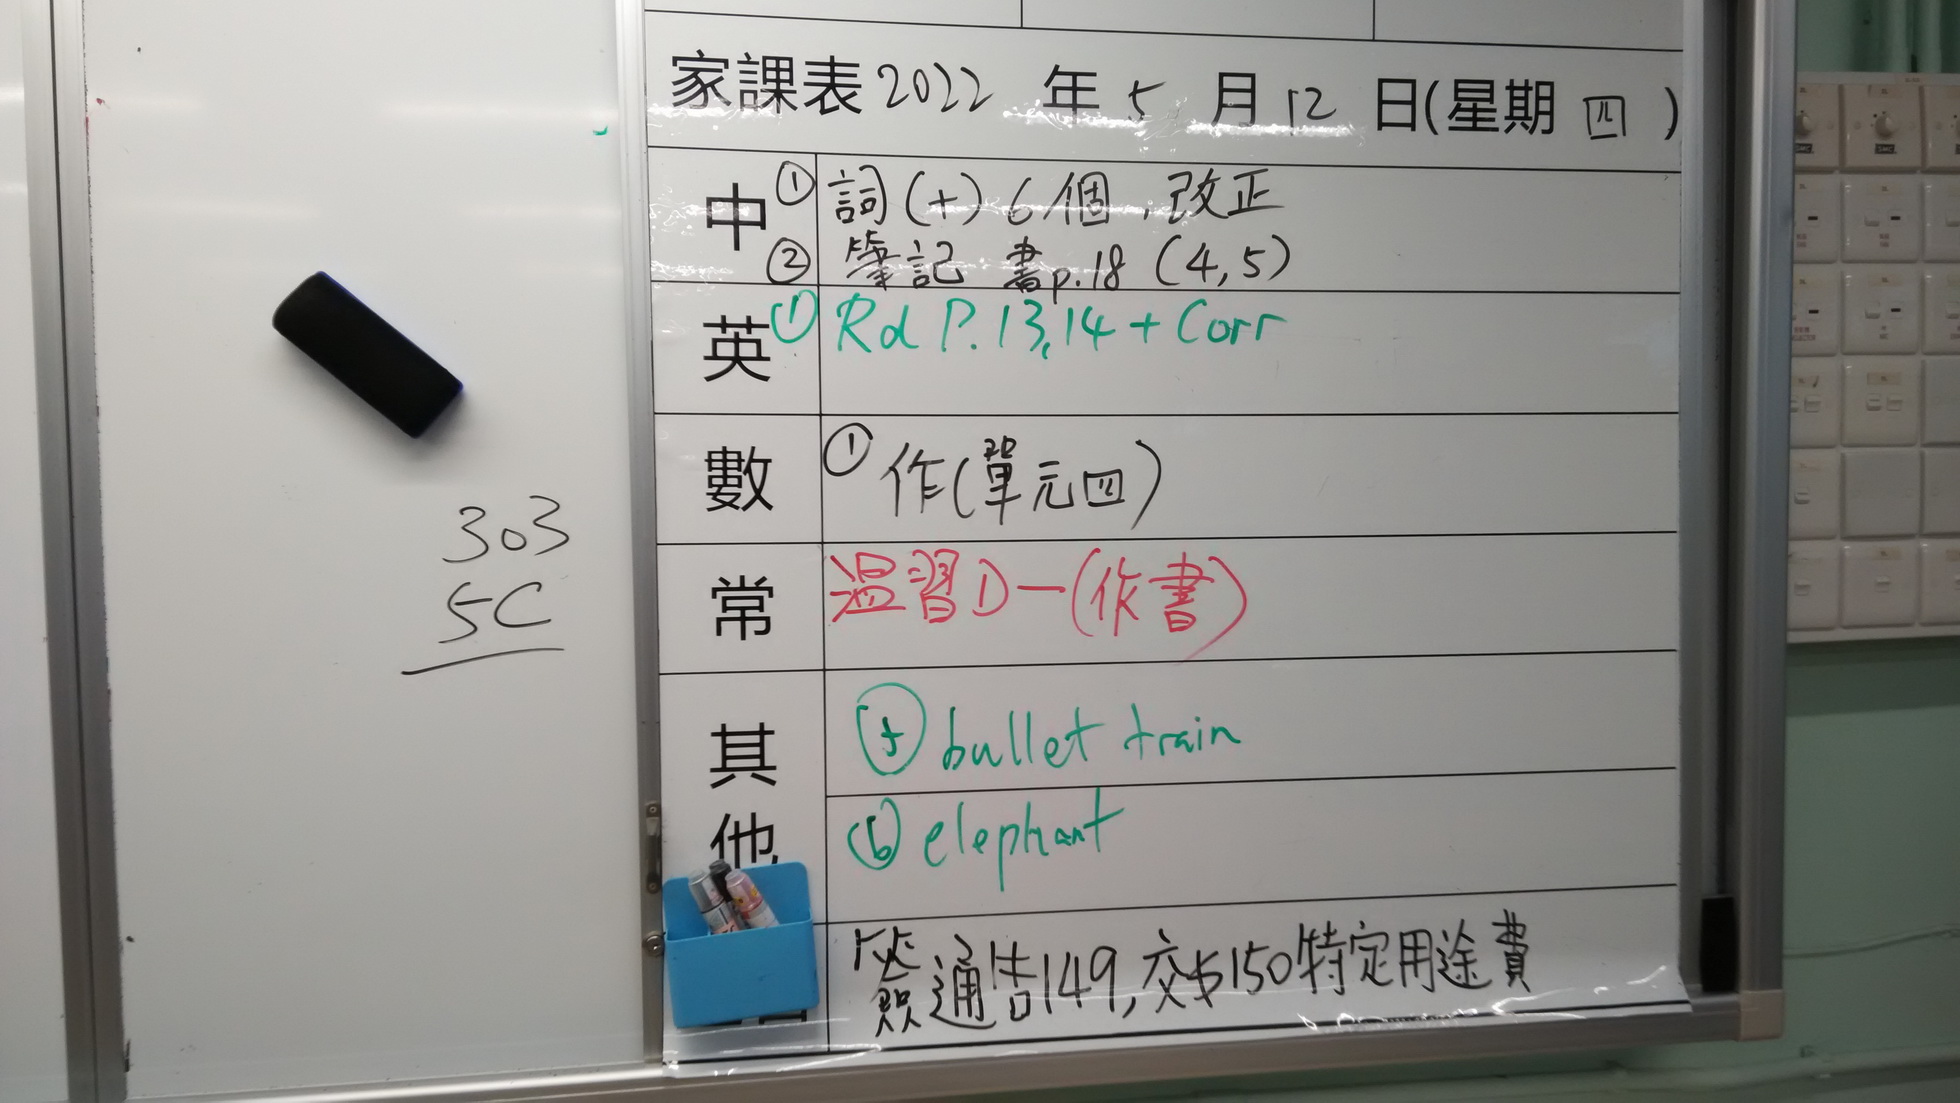 家課表 2022 年 5 月 12 日(星期 四 )
中 ① 詞(+) 6個, 改正
② 筆記 書p.18 (4,5)
英 ① Rd P.13,14 + Corr
數 ① 作(單元四)
常 溫習D一(作書)
其他 bullet train
ⓑ elephant
簽通告149,交$150特定用途費
303
5C